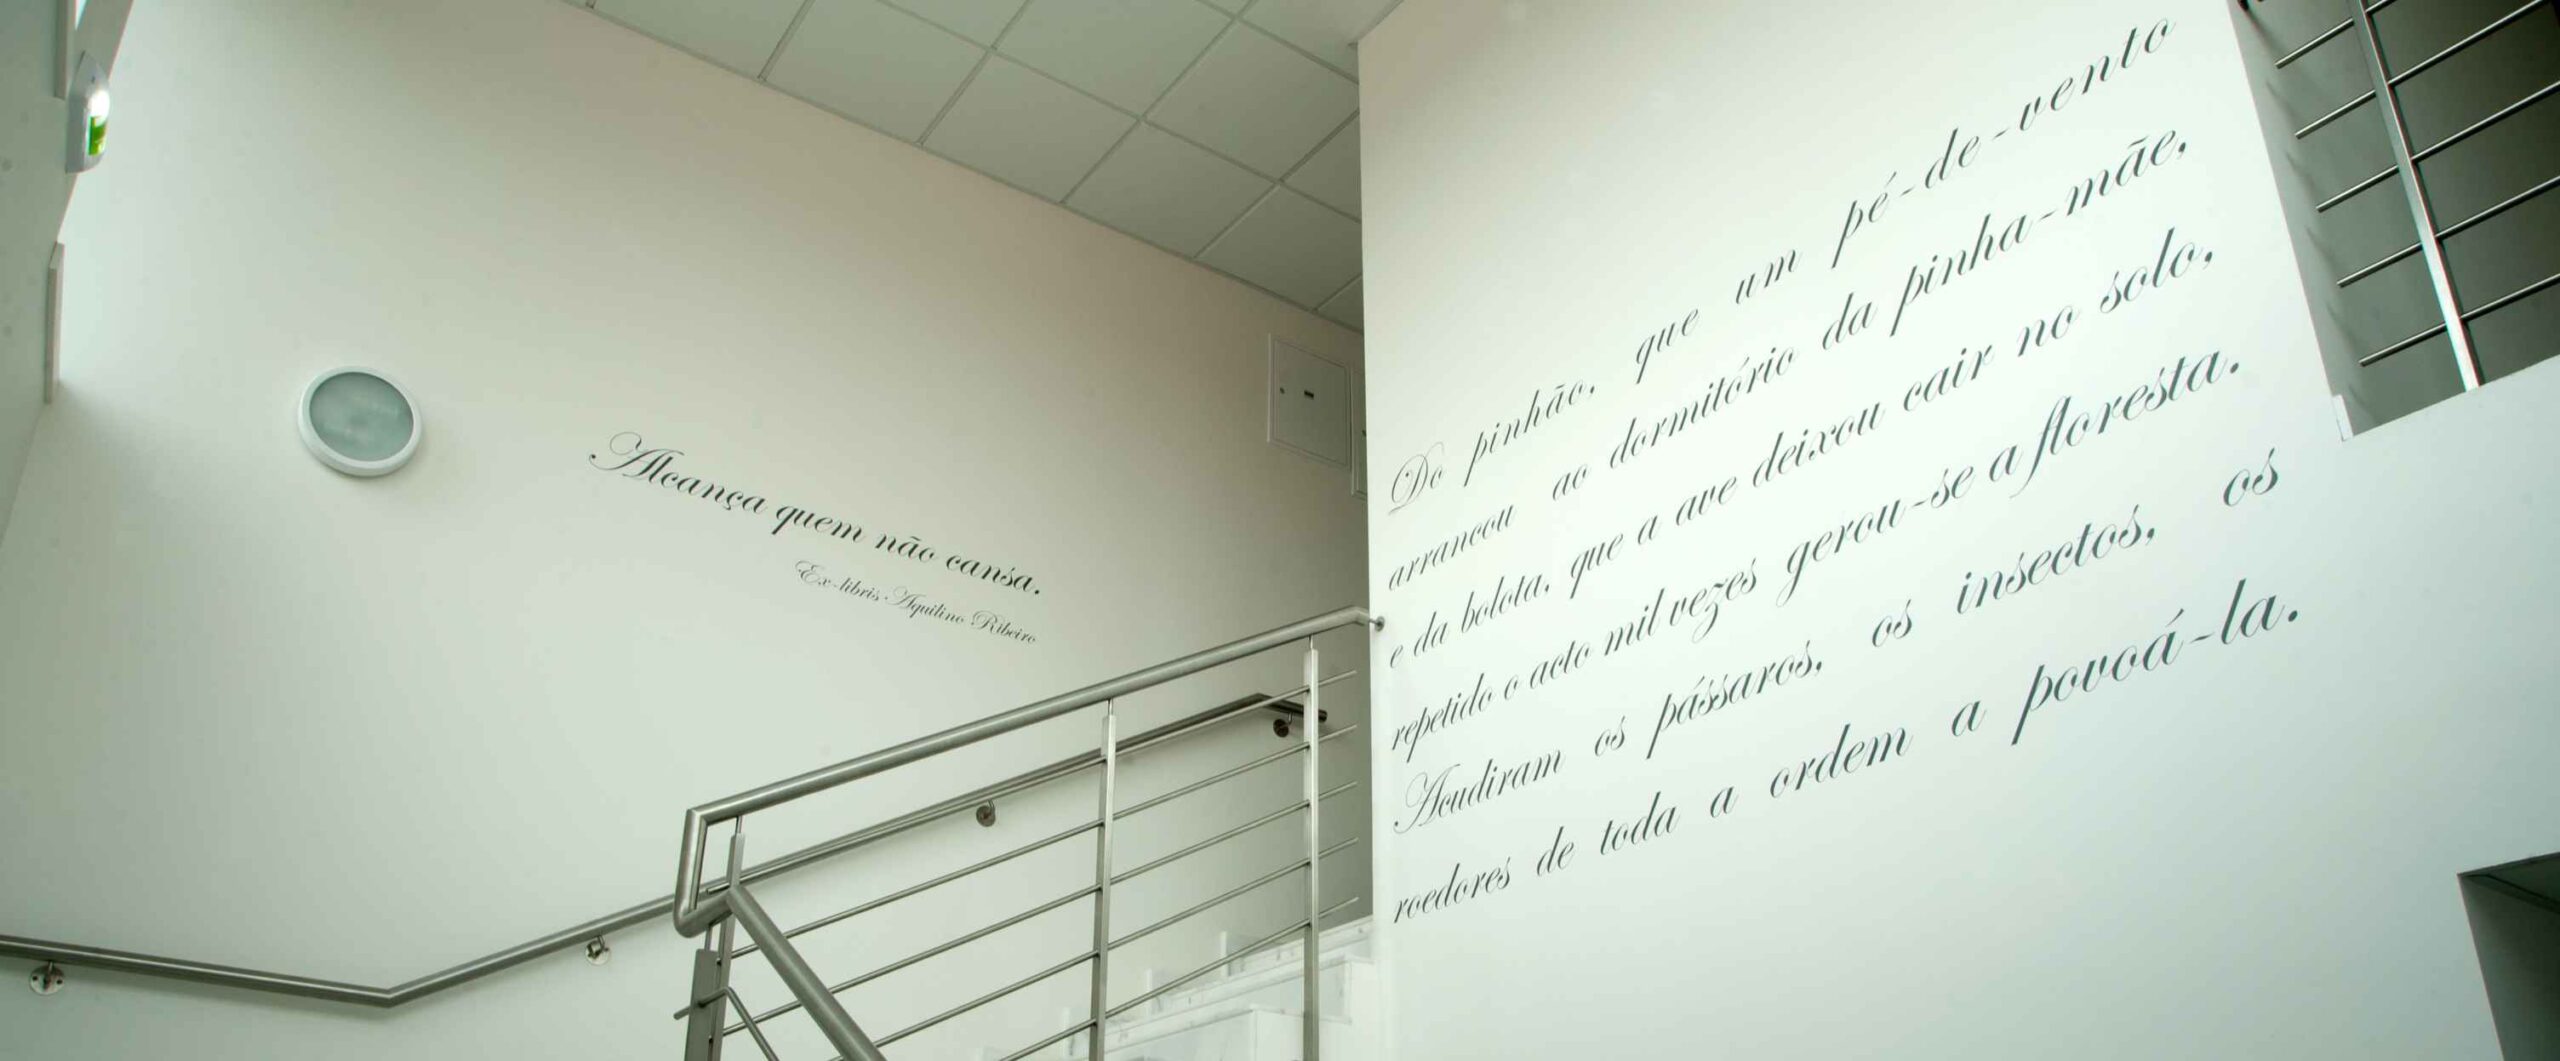 Alcança quem não cansa.
Ex-libris Aquilino Ribeiro
Do pinhão, que um pé-de-vento
arrancou ao dormitório da pinha-mãe,
e da bolota, que a ave deixou cair no solo,
repetido o acto mil vezes gerou-se a floresta.
Acudiram os pássaros, os insectos, os
roedores de toda a ordem a povoá-la.